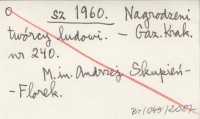 sz 1960. Nagrodzeni
twórcy ludowi. — Gaz. Krak.
nr 240.
M. in. Andrzej Skupień-
-Florek.